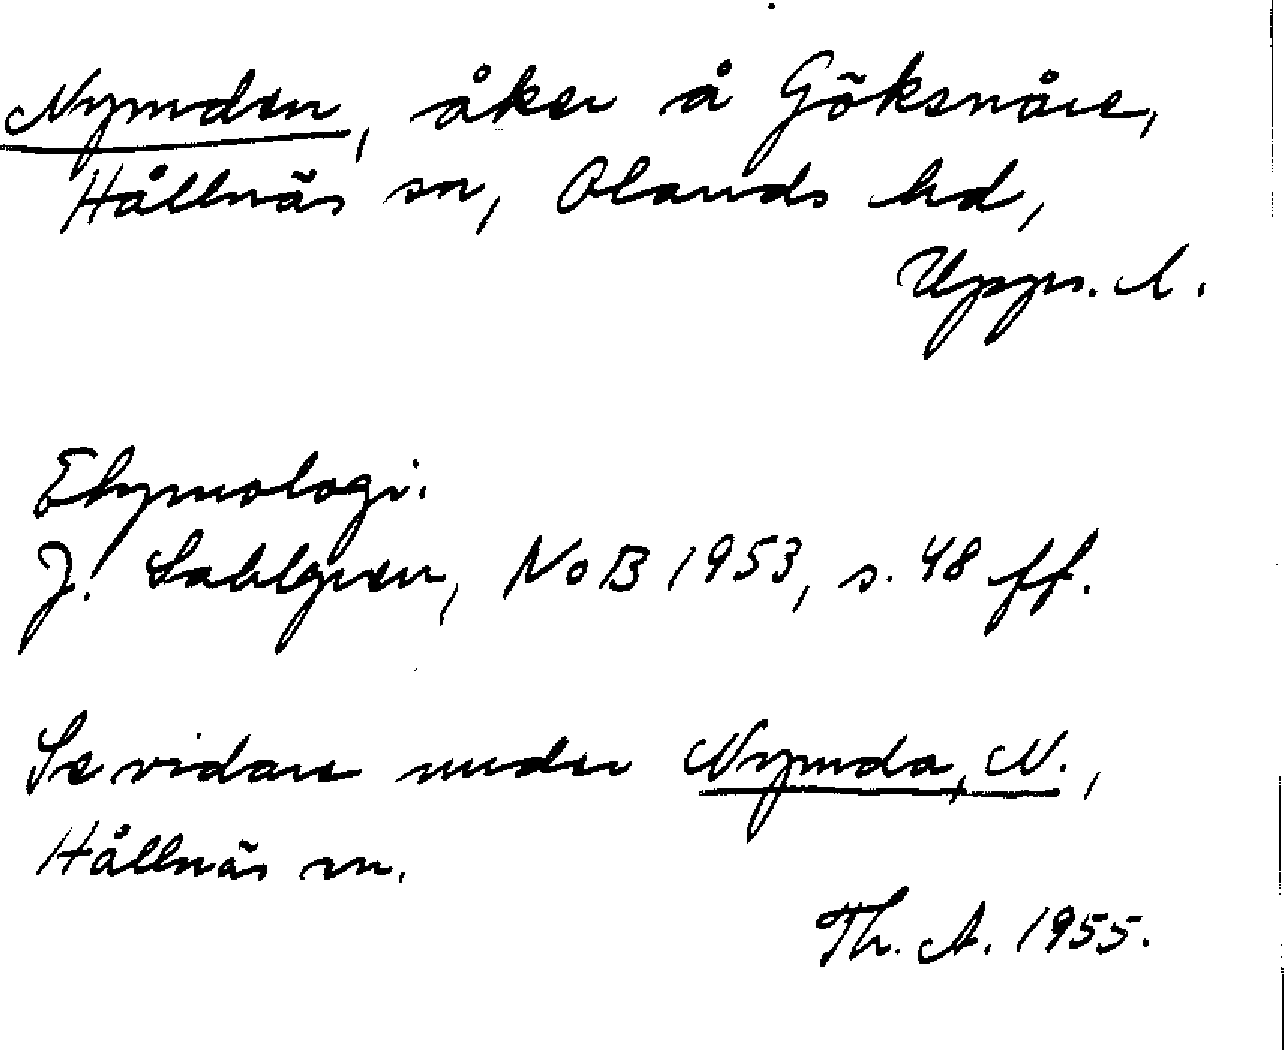 Nymden, åker å Göksnåre,
Hållnäs sn, Olands hd,
Upps. l.
Etymologi.
J. Sahlgren, NoB 1953, s. 48 ff.
Se vidare under Nymda, N.,
Hållnäs sn.
Th. A. 1955.